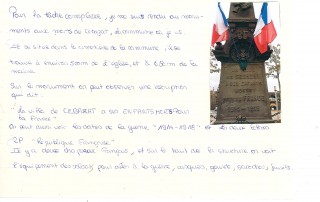 Pour la tâche complexe, je me suis rendu au monu-
ments aux morts de Cébazat, la commune où je vis.
Il se situe dans le cimetière de la commune, il se
trouve à environ 500m de l'église, et à 450m de la
mairie.
Sur le monument on peut observer une inscription
qui dit :
"La ville de CEBAZAT a ses ENFANTS MORTS POUR
la France"
On peut aussi voir les dates de la guerre "1914-1918" et les deux lettres
"RF" "République Française"
Il y a deux drapeaux Français, et sur le haut de la structure on voit
l'équipement des soldats pour aller à la guerre, casques, gourde, fusils